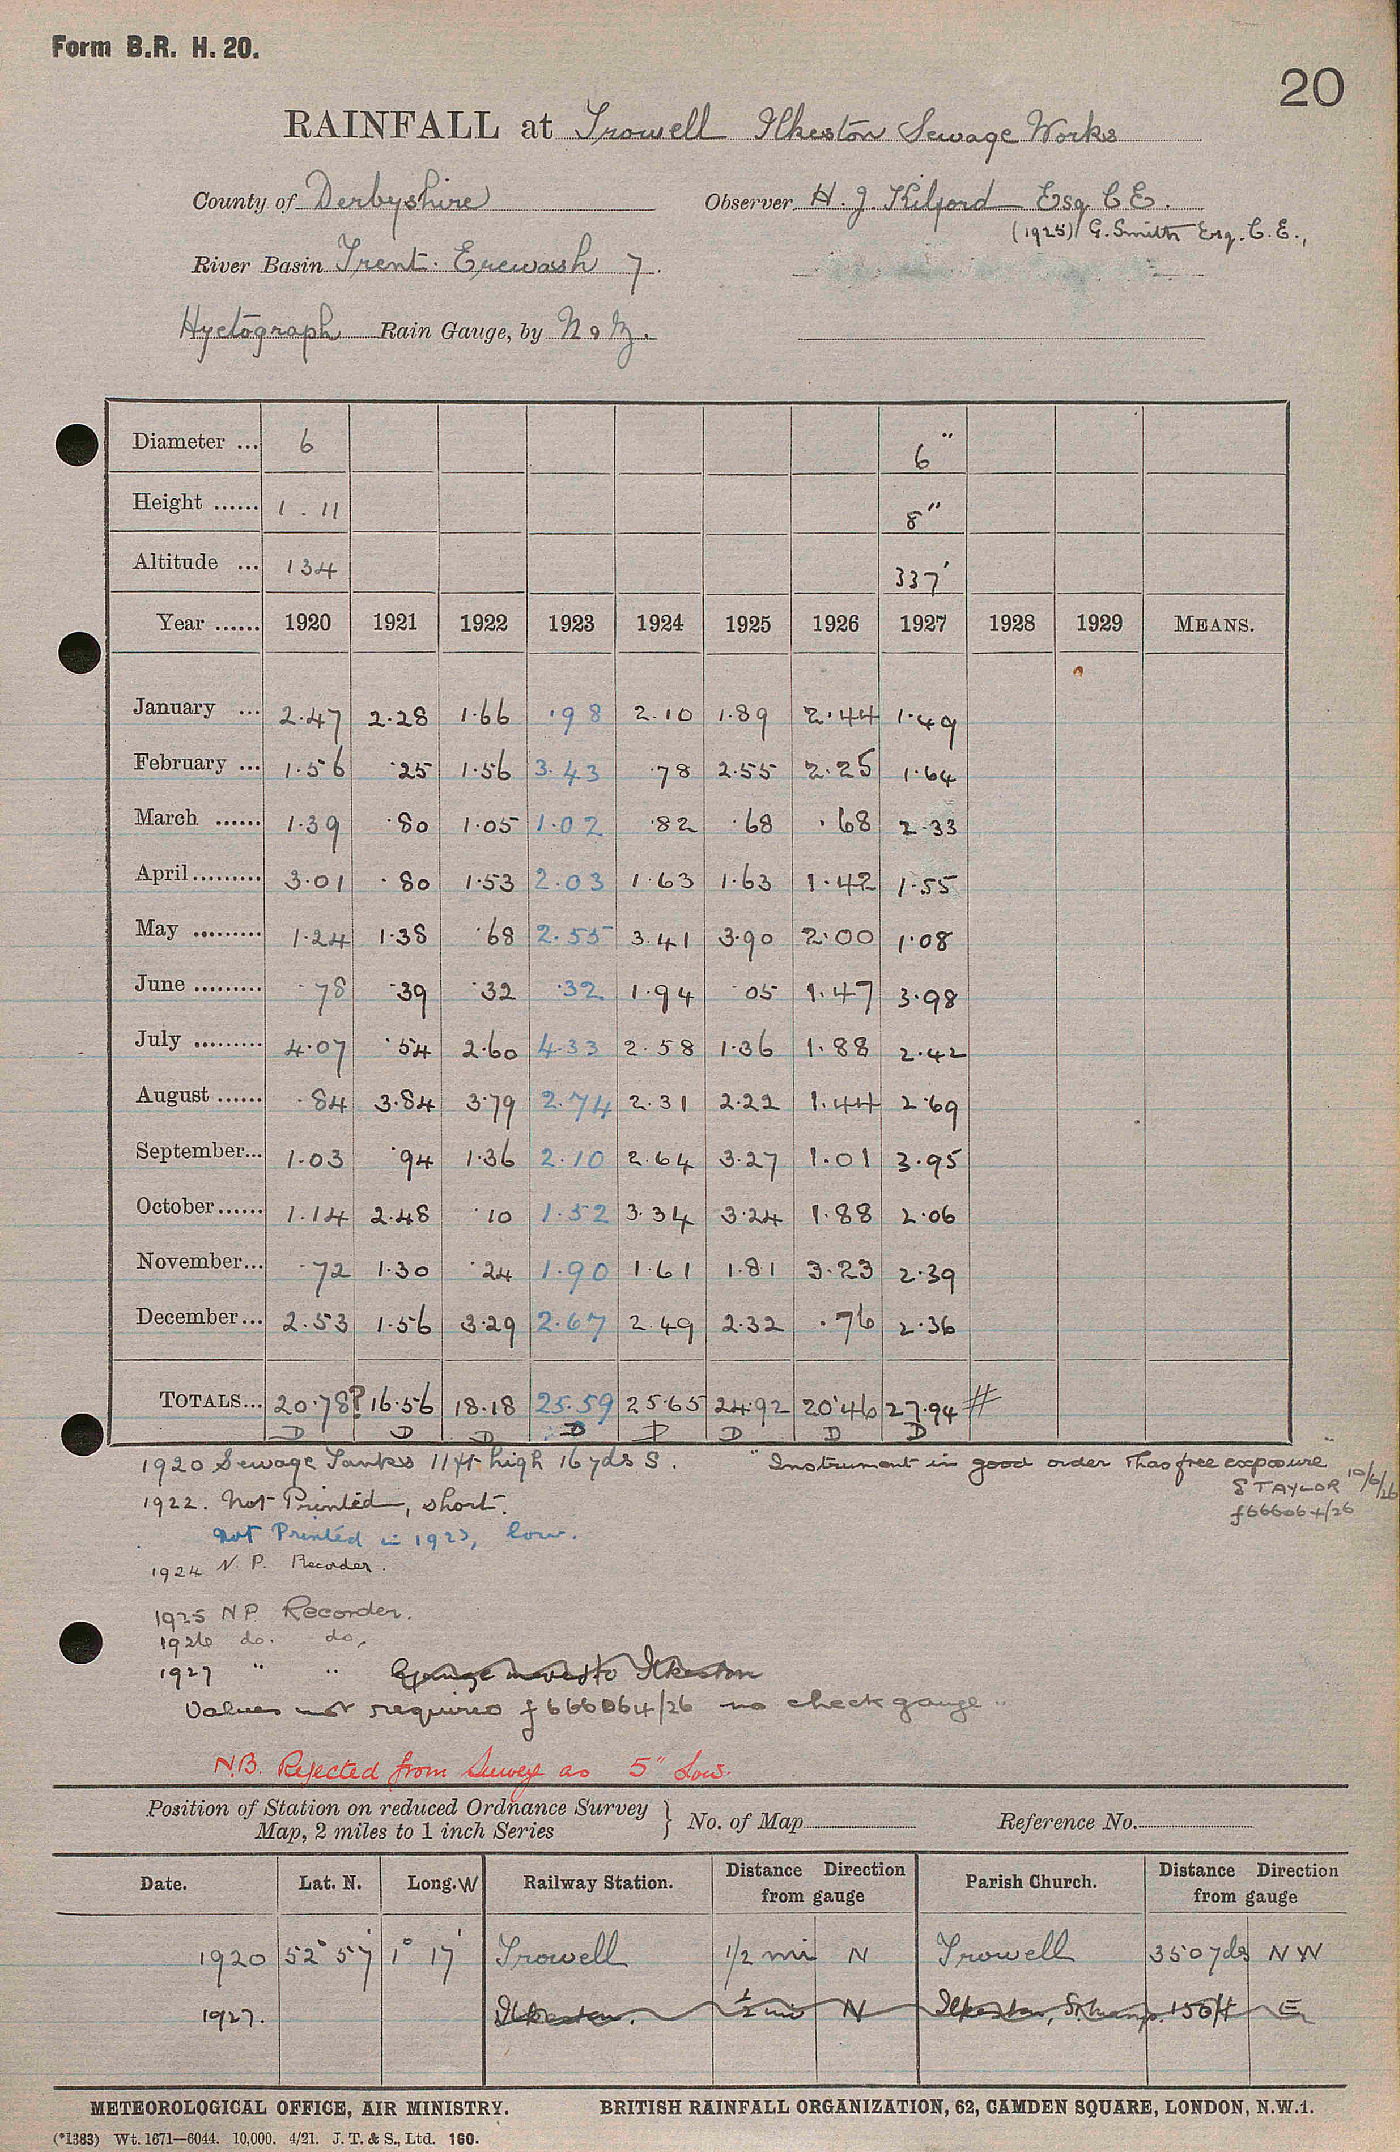 Form B.R. H. 20.
20
RAINFALL at Trowell Ilkeston Sewage Works
County of Derbyshire Observer H. J. Kilford Esq. C E.
(1925) G. Smith Esq. C. E.,
River Basin Trent. Erewash 7.
Hyetograph Rain Gauge, by N & Z.
Diameter ... 6 6"
Height ...... 1 . 11 8"
Altitude ... 134 337'
Year ...... 1920 1921 1922 1923 1924 1925 1926 1927 1928 1929 MEANS.
January ... 2.47 2.28 1.66 .98 2.10 1.89 2.44 1.49
February ... 1.56 .25 1.56 3.43 .78 2.55 2.25 1.64
March ...... 1.39 .80 1.05 1.02 .82 .68 .68 2.33
April ......... 3.01 .80 1.53 2.03 1.63 1.63 1.42 1.55
May ......... 1.24 1.38 .68 2.55 3.41 3.90 2.00 1.08
June ......... .78 .39 .32 .32 1.94 .05 1.47 3.98
July ......... 4.07 .54 2.60 4.33 2.58 1.36 1.88 2.42
August ...... .84 3.84 3.79 2.74 2.31 2.22 1.44 2.69
September... 1.03 .94 1.36 2.10 2.64 3.27 1.01 3.95
October...... 1.14 2.48 .10 1.52 3.34 3.24 1.88 2.06
November... .72 1.30 .24 1.90 1.61 1.81 3.23 2.39
December... 2.53 1.56 3.29 2.67 2.49 2.32 .76 2.36
TOTALS... 20.78? 16.56 18.18 25.59 25.65 24.92 20.46 27.94 #
D D D D D D D D
1920 Sewage Tanks 11 ft high 16 yds S. "Instrument in good order & has free exposure"
S TAYLOR 10/6/26
f666064/26
1922. Not Printed, short.
Not Printed in 1923, low.
1924 N. P. Recorder.
1925 N P. Recorder.
1926 do. do,
1927 " " Gauge moved to Ilkeston
Values not required f 666064/26 no check gauge"
N.B. Rejected from Survey as 5" Low.
Position of Station on reduced Ordnance Survey Map, 2 miles to 1 inch Series } No. of Map Reference No.
Date. Lat. N. Long. W Railway Station. Distance Direction from gauge Parish Church. Distance Direction from gauge
1920 52° 57' 1° 17' Trowell 1/2 mi N Trowell 350 yds N W
1927. Ilkeston. 1/2 mi N Ilkeston, 150 ft E
METEOROLOGICAL OFFICE, AIR MINISTRY. BRITISH RAINFALL ORGANIZATION, 62, CAMDEN SQUARE, LONDON, N.W.1.
(*1383) Wt. 1671—6044. 10,000. 4/21. J. T. & S., Ltd. 160.